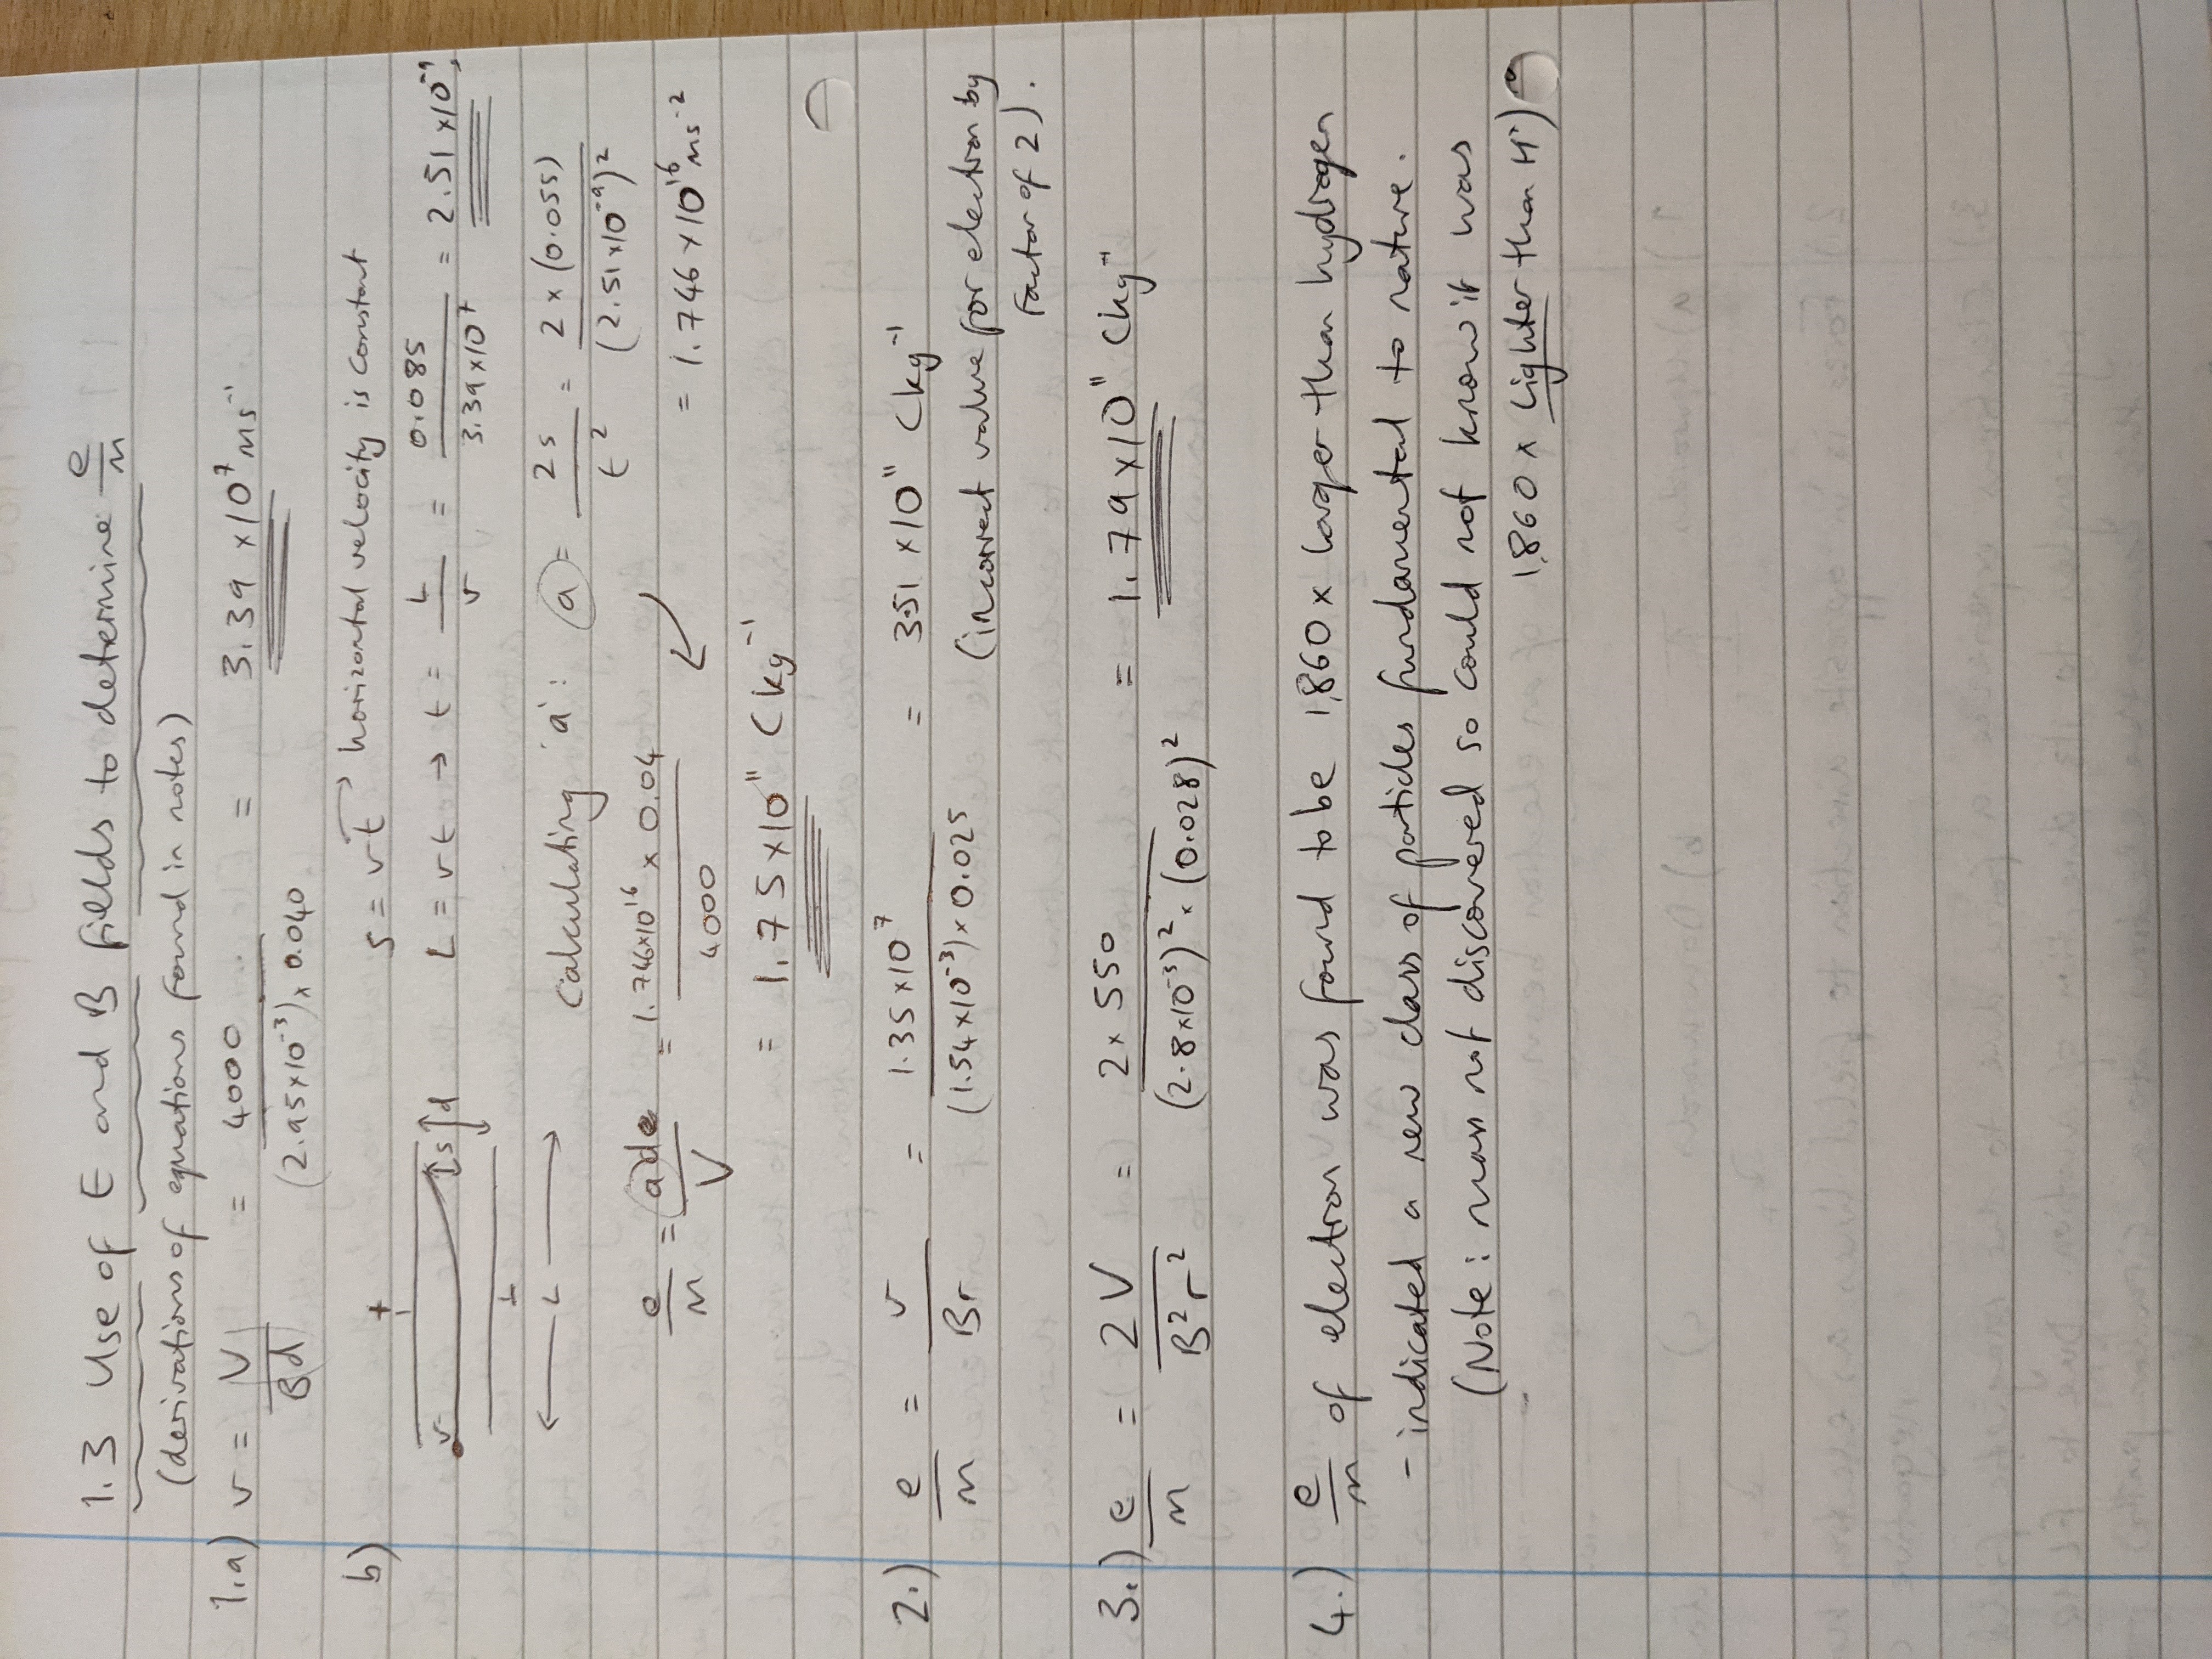 1.3 Use of E and B fields to determine e/m
(derivations of equations found in notes)
1.a) v = V/Bd = 4000/(2.95×10⁻³)×0.040 = 3.39 ×10⁷ ms⁻¹
b) s = vt → horizontal velocity is constant
L = vt → t = L/v = 0.085/3.39×10⁷ = 2.51 ×10⁻⁹ s
+ v s d - L
Calculating 'a': a = 2s/t² = 2 × (0.055)/(2.51×10⁻⁹)²
= 1.746 ×10¹⁶ ms⁻²
e/m = ad/V = 1.746×10¹⁶ × 0.04/4000
= 1.75 ×10¹¹ Ckg⁻¹
2.) e/m = v/Br = 1.35×10⁷/(1.54×10⁻³)×0.025 = 3.51 ×10¹¹ Ckg⁻¹
(incorrect value for electron by
factor of 2).
3.) e/m = 2V/B²r² = 2×550/(2.8×10⁻³)²×(0.028)² = 1.79×10¹¹ Ckg⁻¹
4.) e/m of electron was found to be 1,860 × larger than hydrogen
- indicated a new class of particles fundamental to nature.
(Note: mass not discovered so could not know it was
1,860 × lighter than H⁺)